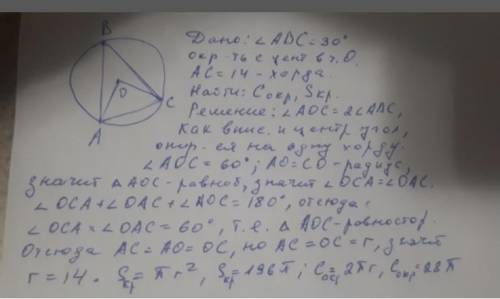 B
O
C
A
Дано: ∠ABC = 30°
окр-ть с цент в т.О.
AC = 14 - хорда.
Найти: Cокр, Sкр.
Решение: ∠AOC = 2∠ABC,
как впис. и центр угол,
опир-ся на одну хорду.
∠AOC = 60°; AO = CO - радиус,
значит △AOC - равноб, значит ∠OCA = ∠OAC.
∠OCA + ∠OAC + ∠AOC = 180°, отсюда
∠OCA = ∠OAC = 60°, т.е. △AOC - равностор.
Отсюда AC = AO = OC, но AC = OC = r, значит
r = 14. Sкр = πr², Sкр = 196π; Cокр = 2πr, Cокр = 28π